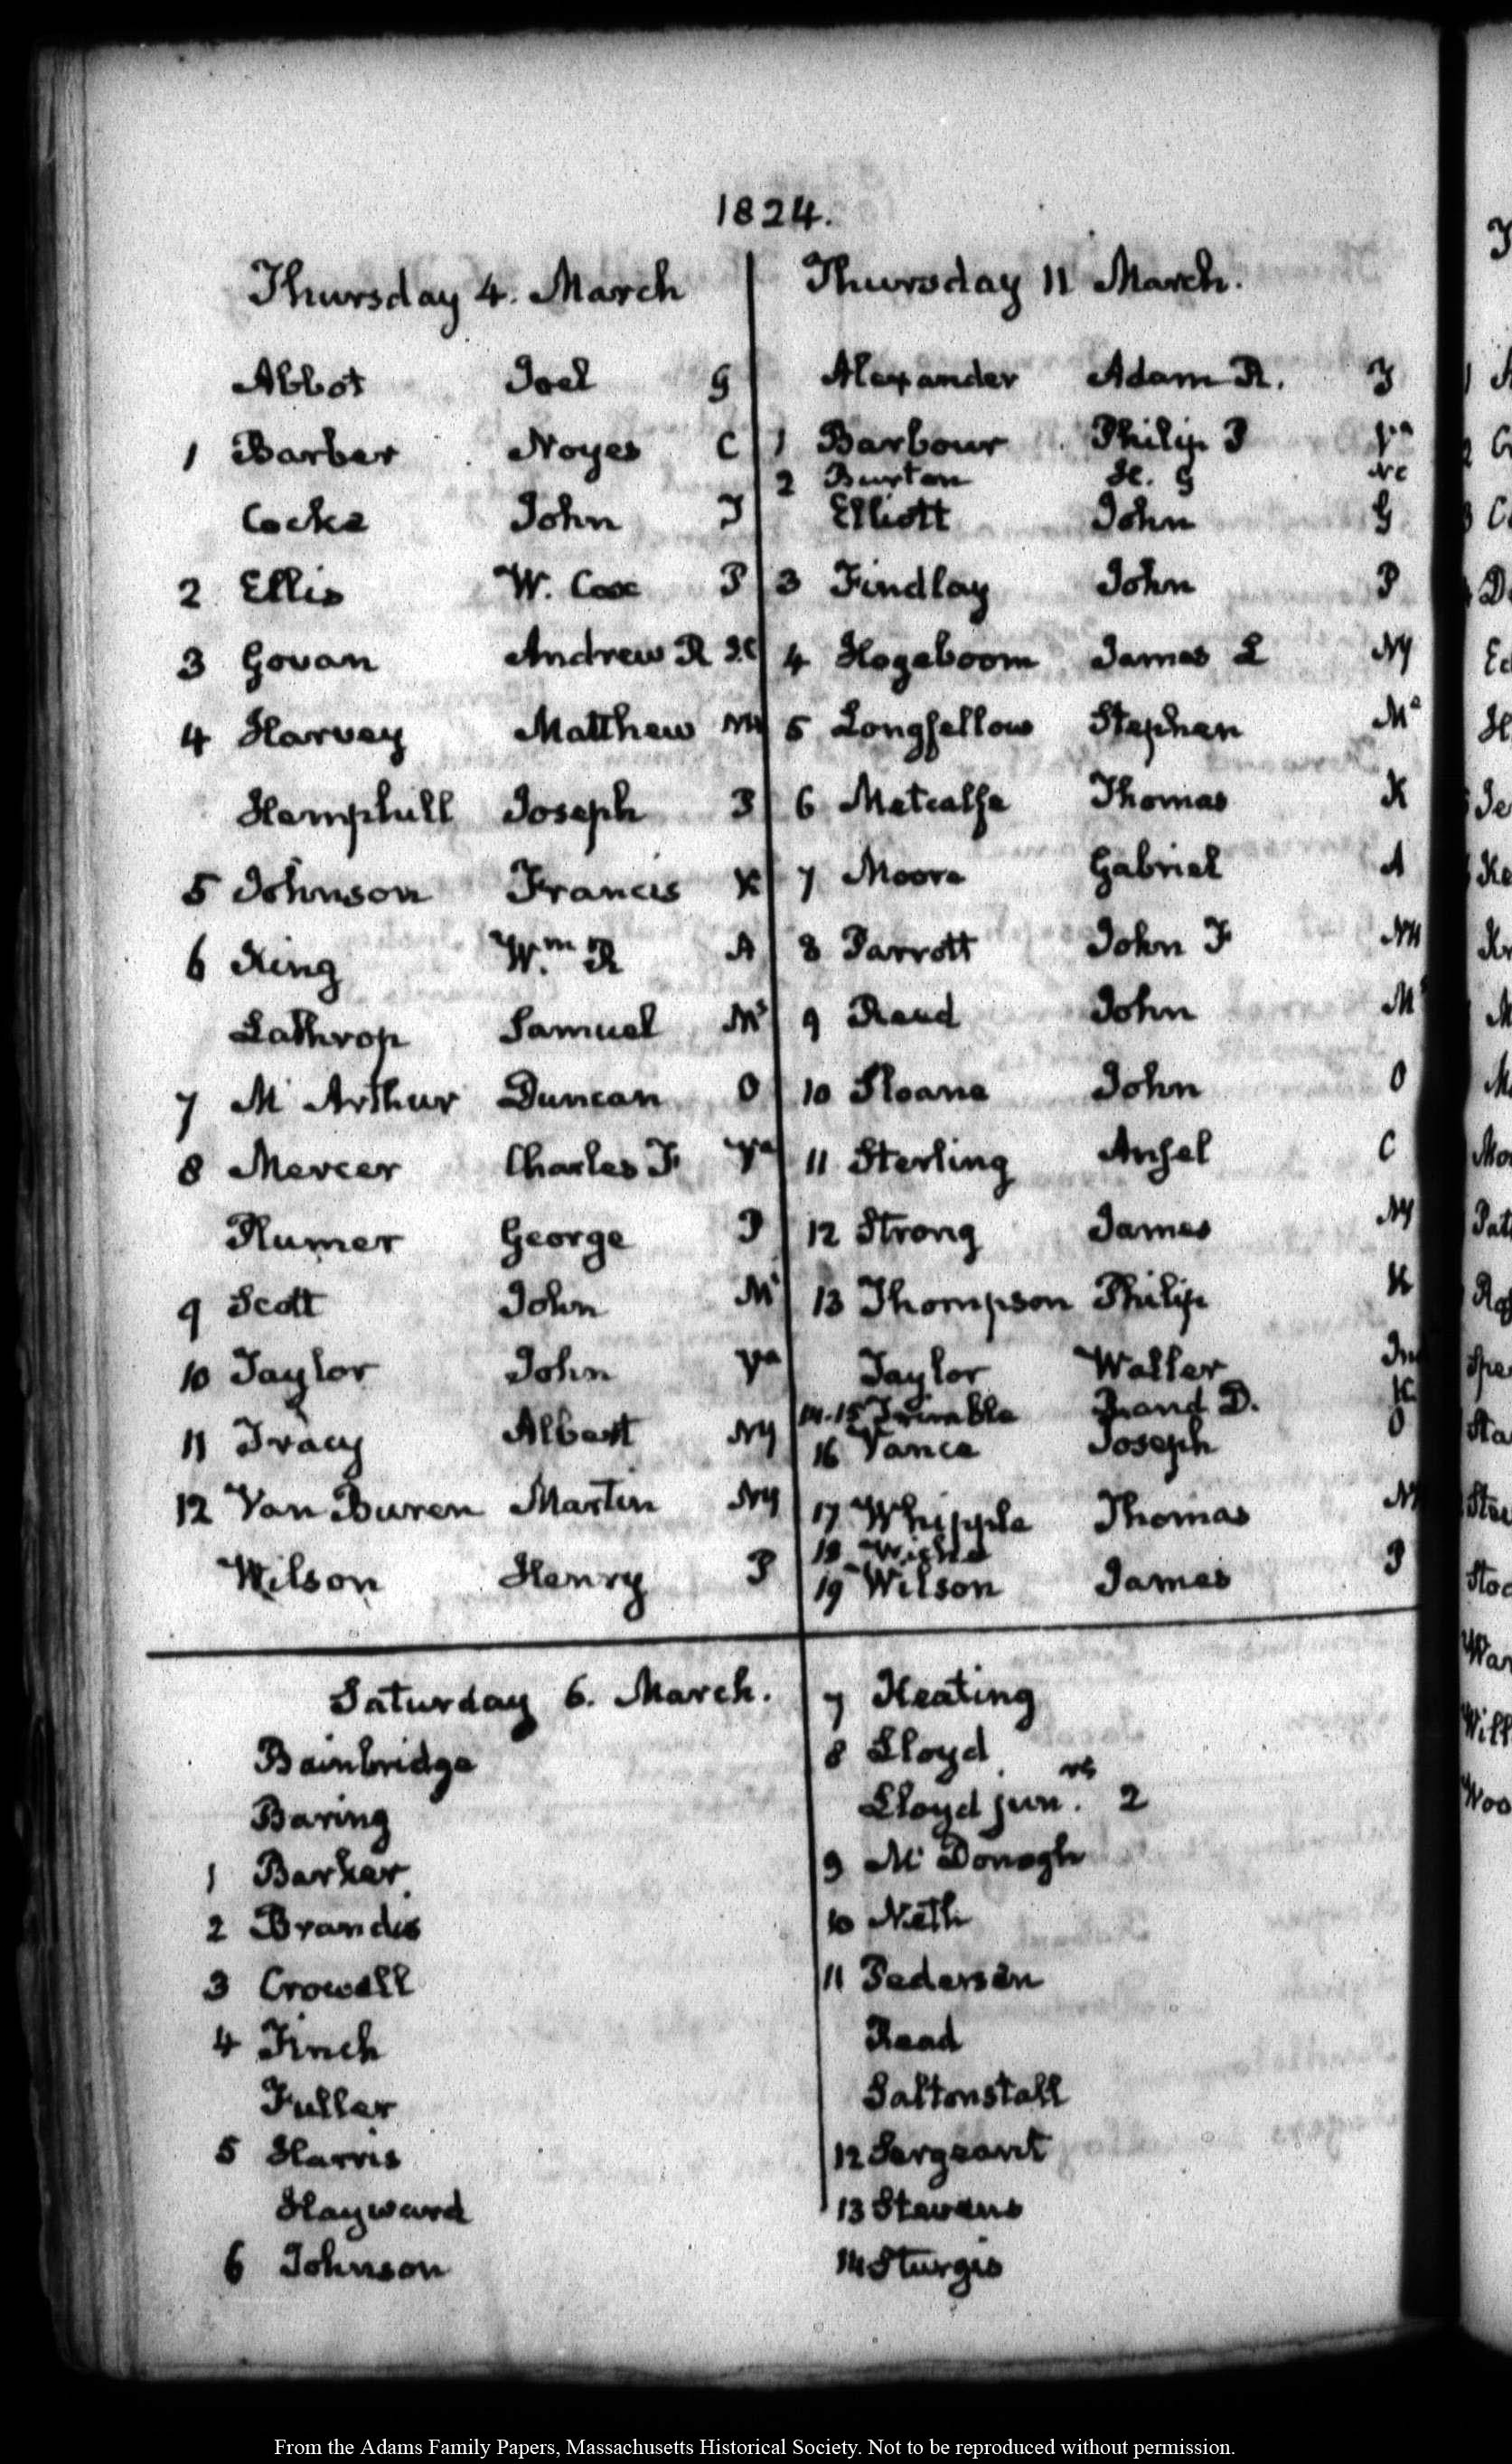 1824.
Thursday 4. March
Abbot Joel G
1 Barber Noyes C
Cocke John T
2 Ellis W. Cox P
3 Govan Andrew R SC
4 Harvey Matthew NH
Hemphill Joseph P
5 Johnson Francis K
6 King Wm. R A
Lathrop Samuel Ms
7 Mc Arthur Duncan O
8 Mercer Charles F Va
Plumer George P
9 Scott John Mi
10 Taylor John Va
11 Tracy Albert NY
12 Van Buren Martin NY
Wilson Henry P
Thursday 11 March.
Alexander Adam R. T
1 Barbour Philip P Va
2 Burton H. G NC
Elliott John G
3 Findlay John P
4 Hogeboom James L NY
5 Longfellow Stephen Me
6 Metcalfe Thomas K
7 Moore Gabriel A
8 Parrott John F NH
9 Reed John M
10 Sloane John O
11 Sterling Ansel C
12 Strong James NY
13 Thompson Philip K
Taylor Waller In
14-15 Trimble and D. K
16 Vance Joseph O
17 Whipple Thomas N
18
19 Wilson James P
Saturday 6. March.
Bainbridge
Baring
1 Barker
2 Brandis
3 Crowell
4 Finch
Fuller
5 Harris
Hayward
6 Johnson
7 Keating
8 Lloyd
Lloyd junr. 2
9 Mc Donogh
10 Neth
11 Pedersen
Read
Saltonstall
12 Sergeant
13 Stevens
14 Sturgis
From the Adams Family Papers, Massachusetts Historical Society. Not to be reproduced without permission.